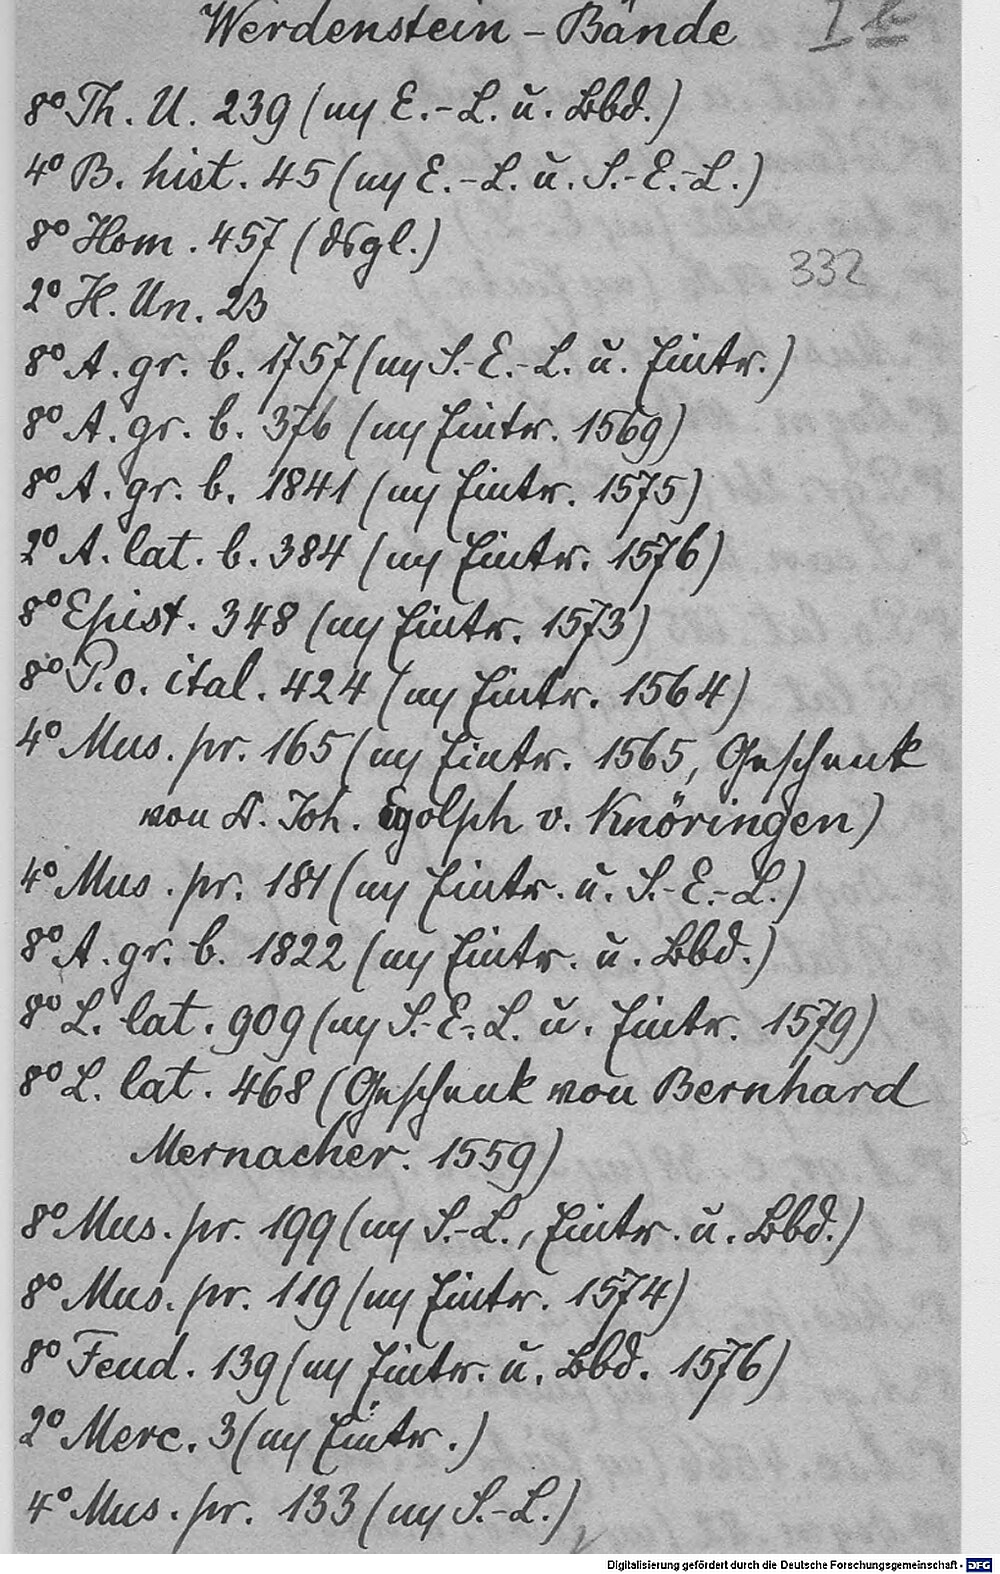 Werdenstein - Bände
I k
8° Th. U. 239 (m E.-L. u. Bbd.)
4° B. hist. 45 (m E.-L. u. S.-E.-L.)
8° Hom. 457 (dsgl.)
332
2° H. Un. 23
8° A. gr. b. 1757 (m S.-E.-L. u. Eintr.)
8° A. gr. b. 376 (m Eintr. 1569)
8° A. gr. b. 1841 (m Eintr. 1575)
2° A. lat. b. 384 (m Eintr. 1576)
8° Epist. 348 (m Eintr. 1573)
8° P. o. ital. 424 (m Eintr. 1564)
4° Mus. pr. 165 (m Eintr. 1565, Geschenk
von D. Joh. Egolph v. Knöringen)
4° Mus. pr. 181 (m Eintr. u. S.-E.-L.)
8° A. gr. b. 1822 (m Eintr. u. Bbd.)
8° L. lat. 909 (m S.-E.-L. u. Eintr. 1579)
8° L. lat. 468 (Geschenk von Bernhard
Mernacher. 1559)
8° Mus. pr. 199 (m S.-L., Eintr. u. Bbd.)
8° Mus. pr. 119 (m Eintr. 1574)
8° Feud. 139 (m Eintr. u. Bbd. 1576)
2° Merc. 3 (m Eintr.)
4° Mus. pr. 133 (m S.-L.)
Digitalisierung gefördert durch die Deutsche Forschungsgemeinschaft - DFG